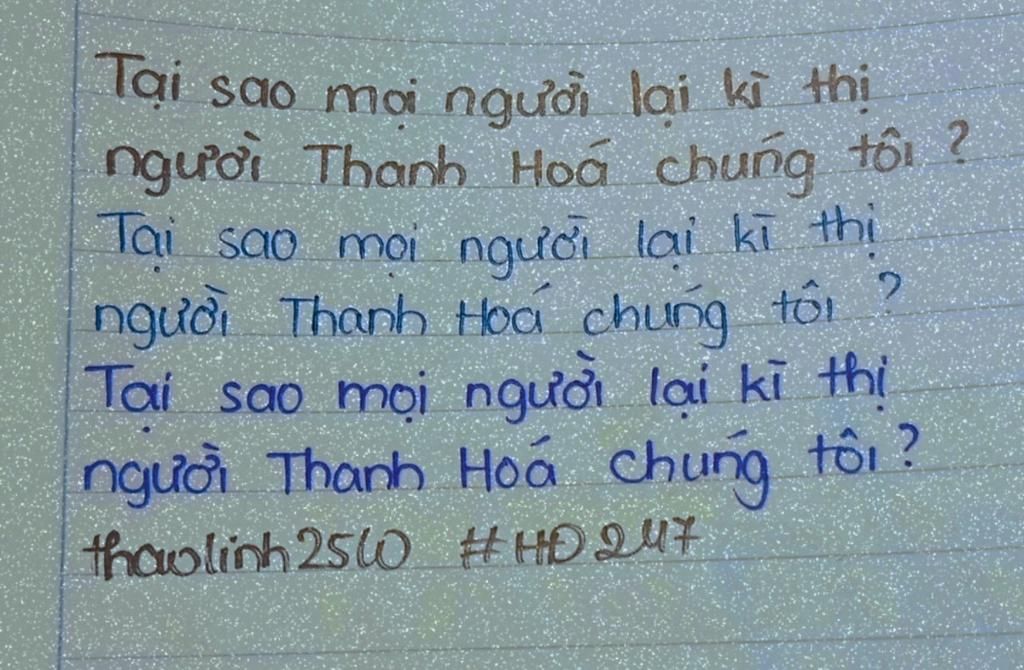 Tại sao mọi người lại kì thị
người Thanh Hoá chúng tôi ?
Tại sao mọi người lại kì thị
người Thanh Hoá chúng tôi ?
Tại sao mọi người lại kì thị
người Thanh Hoá chúng tôi ?
thaolinh2510 #HĐ247